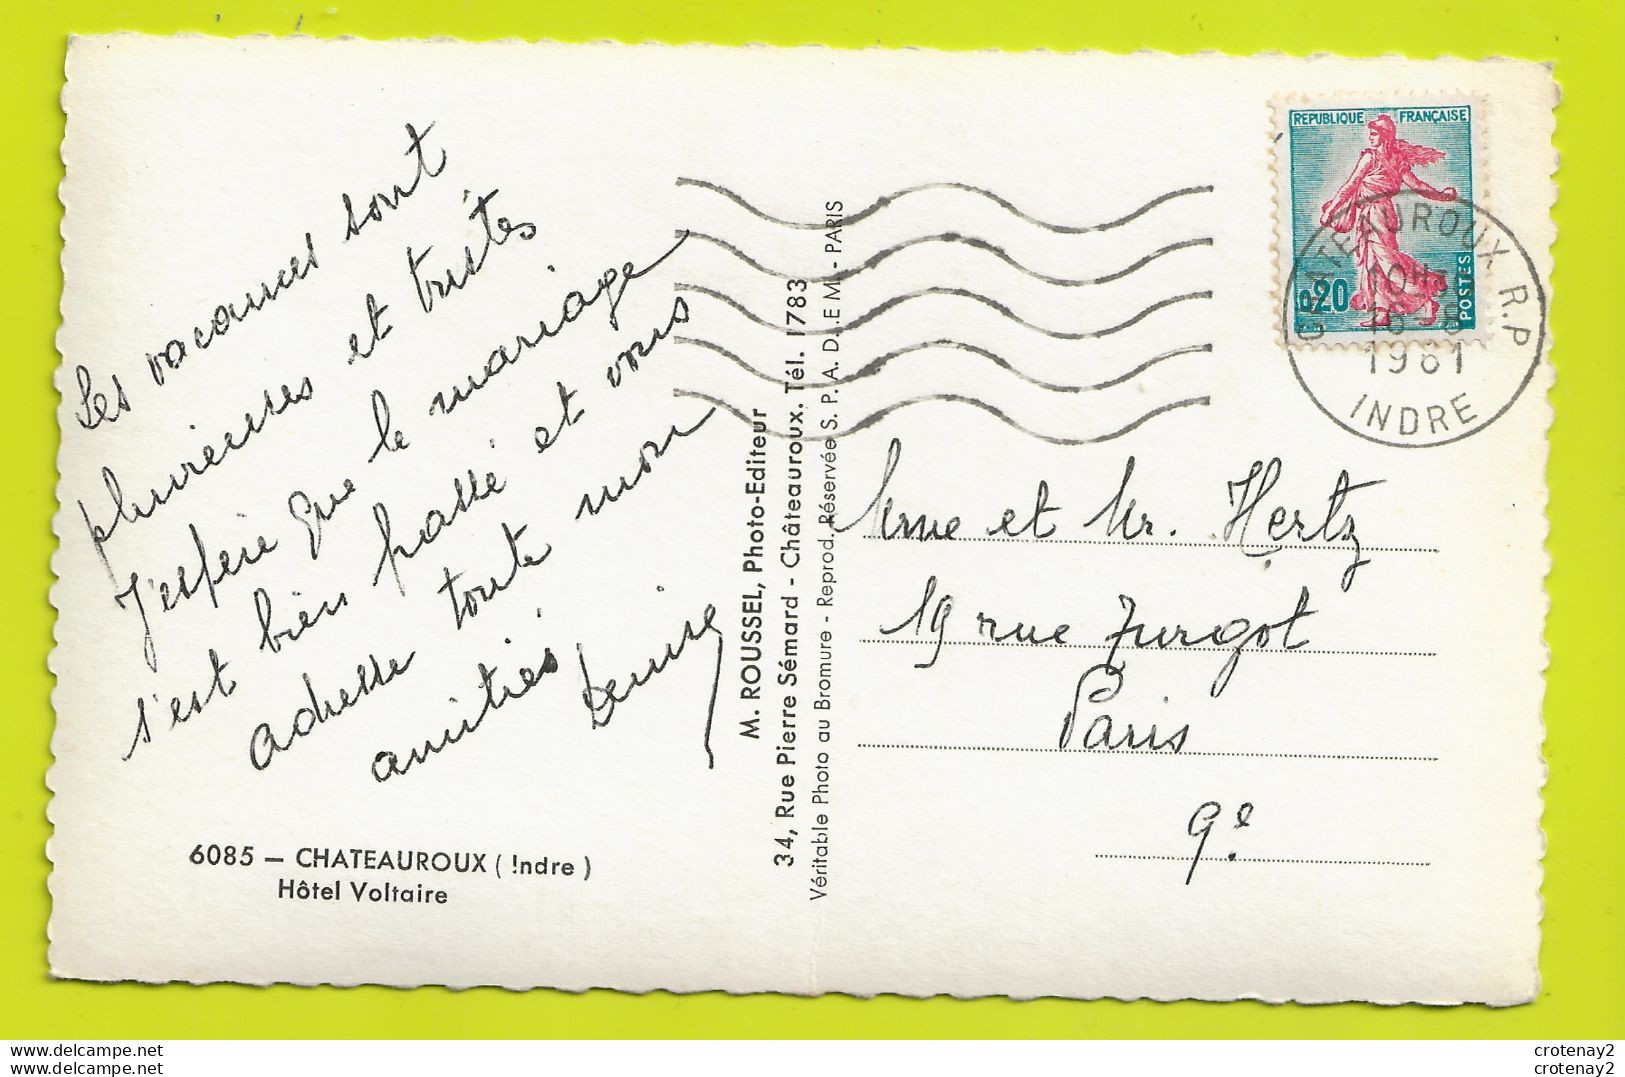 Les vacances sont
pluvieuses et tristes
J'espère que le mariage
s'est bien passé et vous
adresse toute mon
amitiés
Denise
6085 – CHATEAUROUX (Indre)
Hôtel Voltaire
M. ROUSSEL, Photo-Editeur
34, Rue Pierre Sémard - Châteauroux. Tél. 1783
Véritable Photo au Bromure - Reprod. Réservée S. P. A. D. E M. - PARIS
REPUBLIQUE FRANÇAISE
0,20
POSTES
CHATEAUROUX R.P
16-8
1961
INDRE
Mme et Mr. Hertz
19 rue Turgot
Paris
9e
crotenay2
crotenay2
delcampe.net
delcampe.net